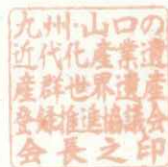 九州・山口の
近代化産業遺
産群世界遺産
登録推進協議会
会長之印